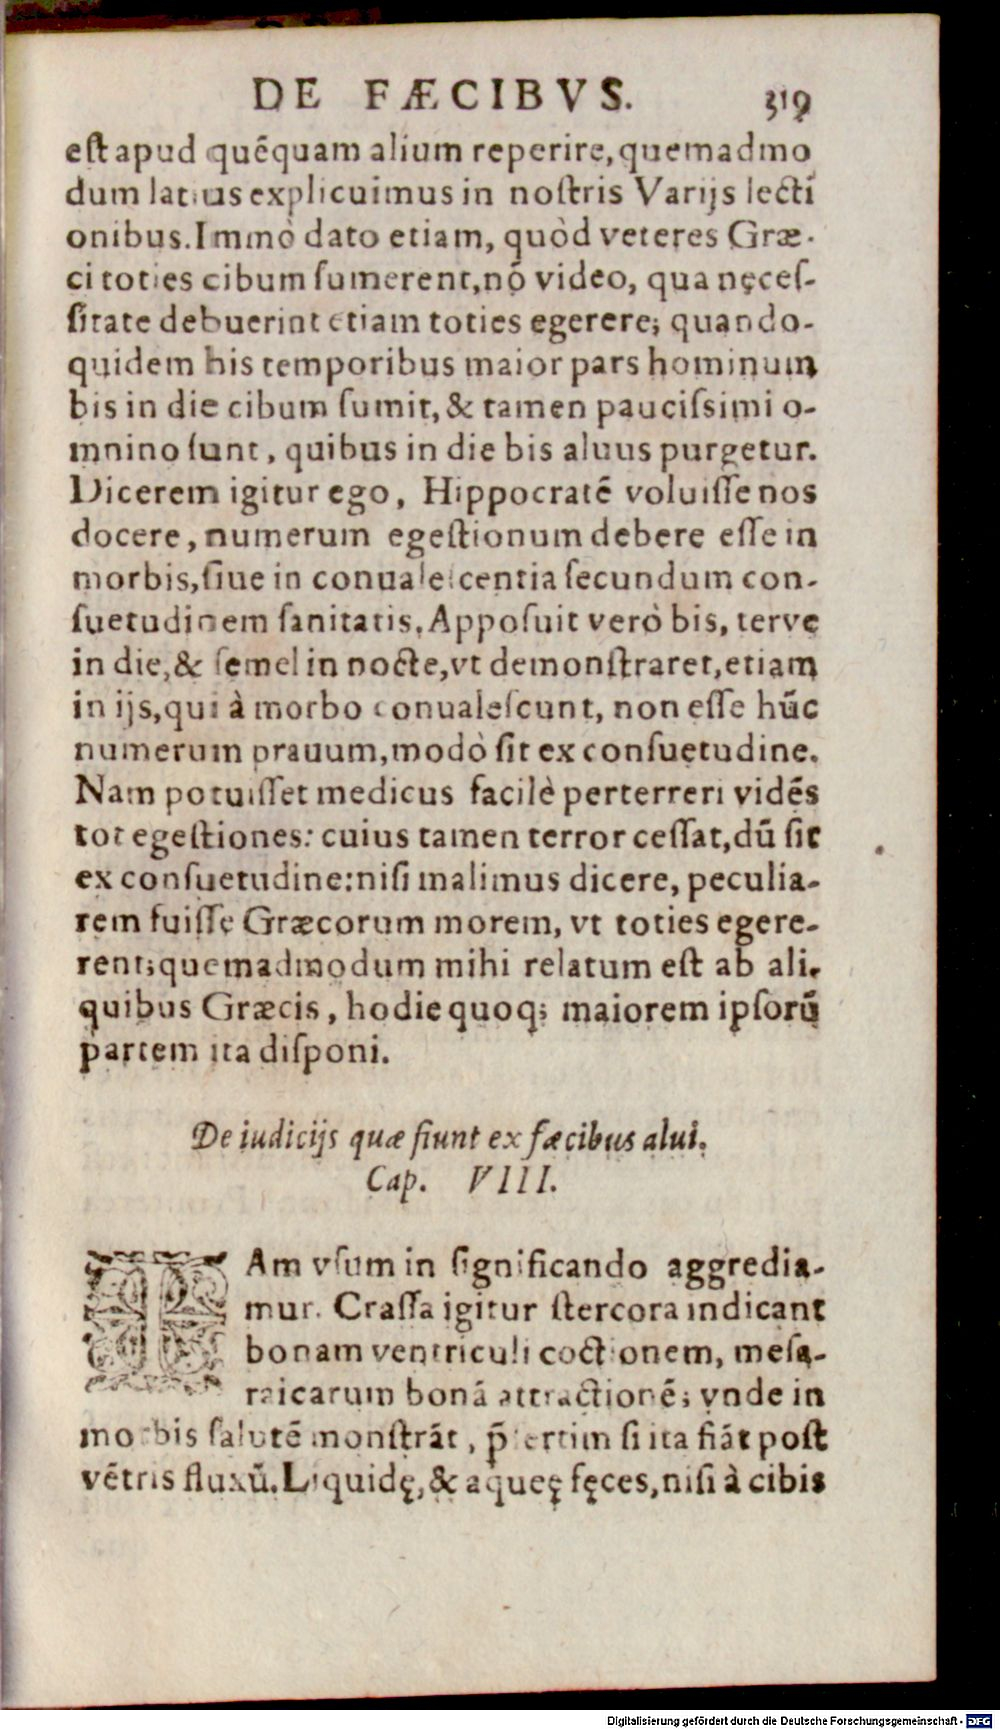 DE FÆCIBVS. 319
eſt apud quēquam alium reperire, quemadmo
dum latius explicuimus in noſtris Varijs lecti
onibus. Immò dato etiam, quòd veteres Græ-
ci toties cibum ſumerent, nō video, qua nęceſ-
ſitate debuerint etiam toties egerere; quando-
quidem his temporibus maior pars hominum
bis in die cibum ſumit, & tamen pauciſsimi o-
mnino ſunt, quibus in die bis aluus purgetur.
Dicerem igitur ego, Hippocratē voluiſſe nos
docere, numerum egeſtionum debere eſſe in
morbis, ſiue in conualeſcentia ſecundum con-
ſuetudinem ſanitatis. Appoſuit verò bis, terve
in die, & ſemel in nocte, vt demonſtraret, etiam
in ijs, qui à morbo conualeſcunt, non eſſe hūc
numerum prauum, modò ſit ex conſuetudine.
Nam potuiſſet medicus facilè perterreri vidēs
tot egeſtiones: cuius tamen terror ceſſat, dū ſit
ex conſuetudine: niſi malimus dicere, peculia-
rem fuiſſe Græcorum morem, vt toties egere-
rent; quemadmodum mihi relatum eſt ab ali-
quibus Græcis, hodie quoq; maiorem ipſorū
partem ita diſponi.
De iudicijs quæ fiunt ex fæcibus alui.
Cap. VIII.
IAm vſum in ſignificando aggredia-
mur. Craſſa igitur ſtercora indicant
bonam ventriculi coctionem, meſa-
raicarum bonā attractionē; vnde in
morbis ſalutē monſtrāt, p̄ſertim ſi ita fiāt poſt
vētris fluxū. Liquidę, & aqueę fęces, niſi à cibis
Digitalisierung gefördert durch die Deutsche Forschungsgemeinschaft - DFG